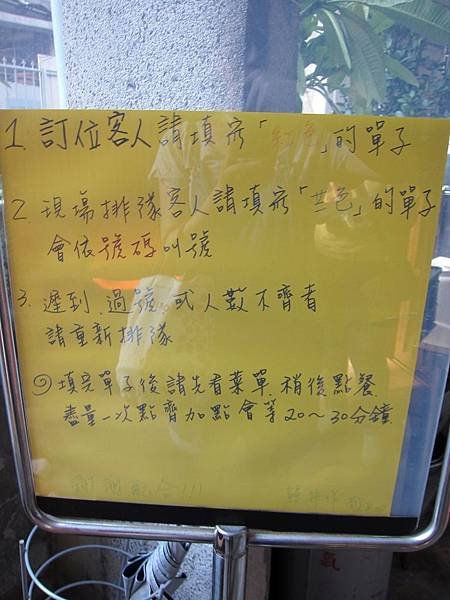 1. 訂位客人請填寫「紅色」的單子
2. 現場排隊客人請填寫「藍色」的單子
會依號碼叫號
3. 遲到.過號 或人數不齊者
請重新排隊
填完單子後請先看菜單.稍後點餐.
盡量一次點齊加點會等20~30分鐘
謝謝配合!!!